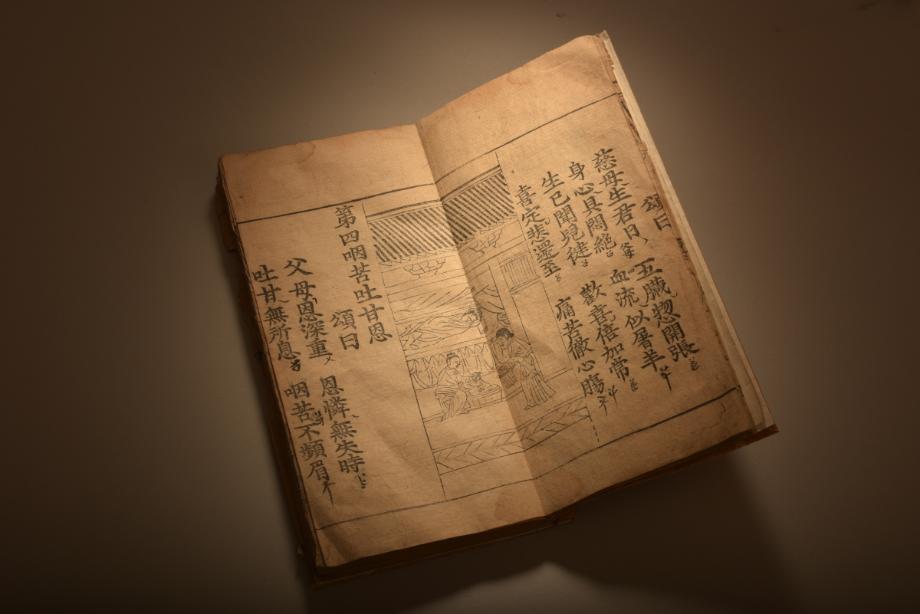 頌曰
慈母生君日 五臟惣開張
身心具悶絶 血流似屠羊
生已聞児徤 歡喜倍加常
喜定悲還至 痛苦徹心膓
第四咽苦吐甘恩
頌曰
父母恩深重 恩憐無失時
吐甘無所息 咽苦不頻眉